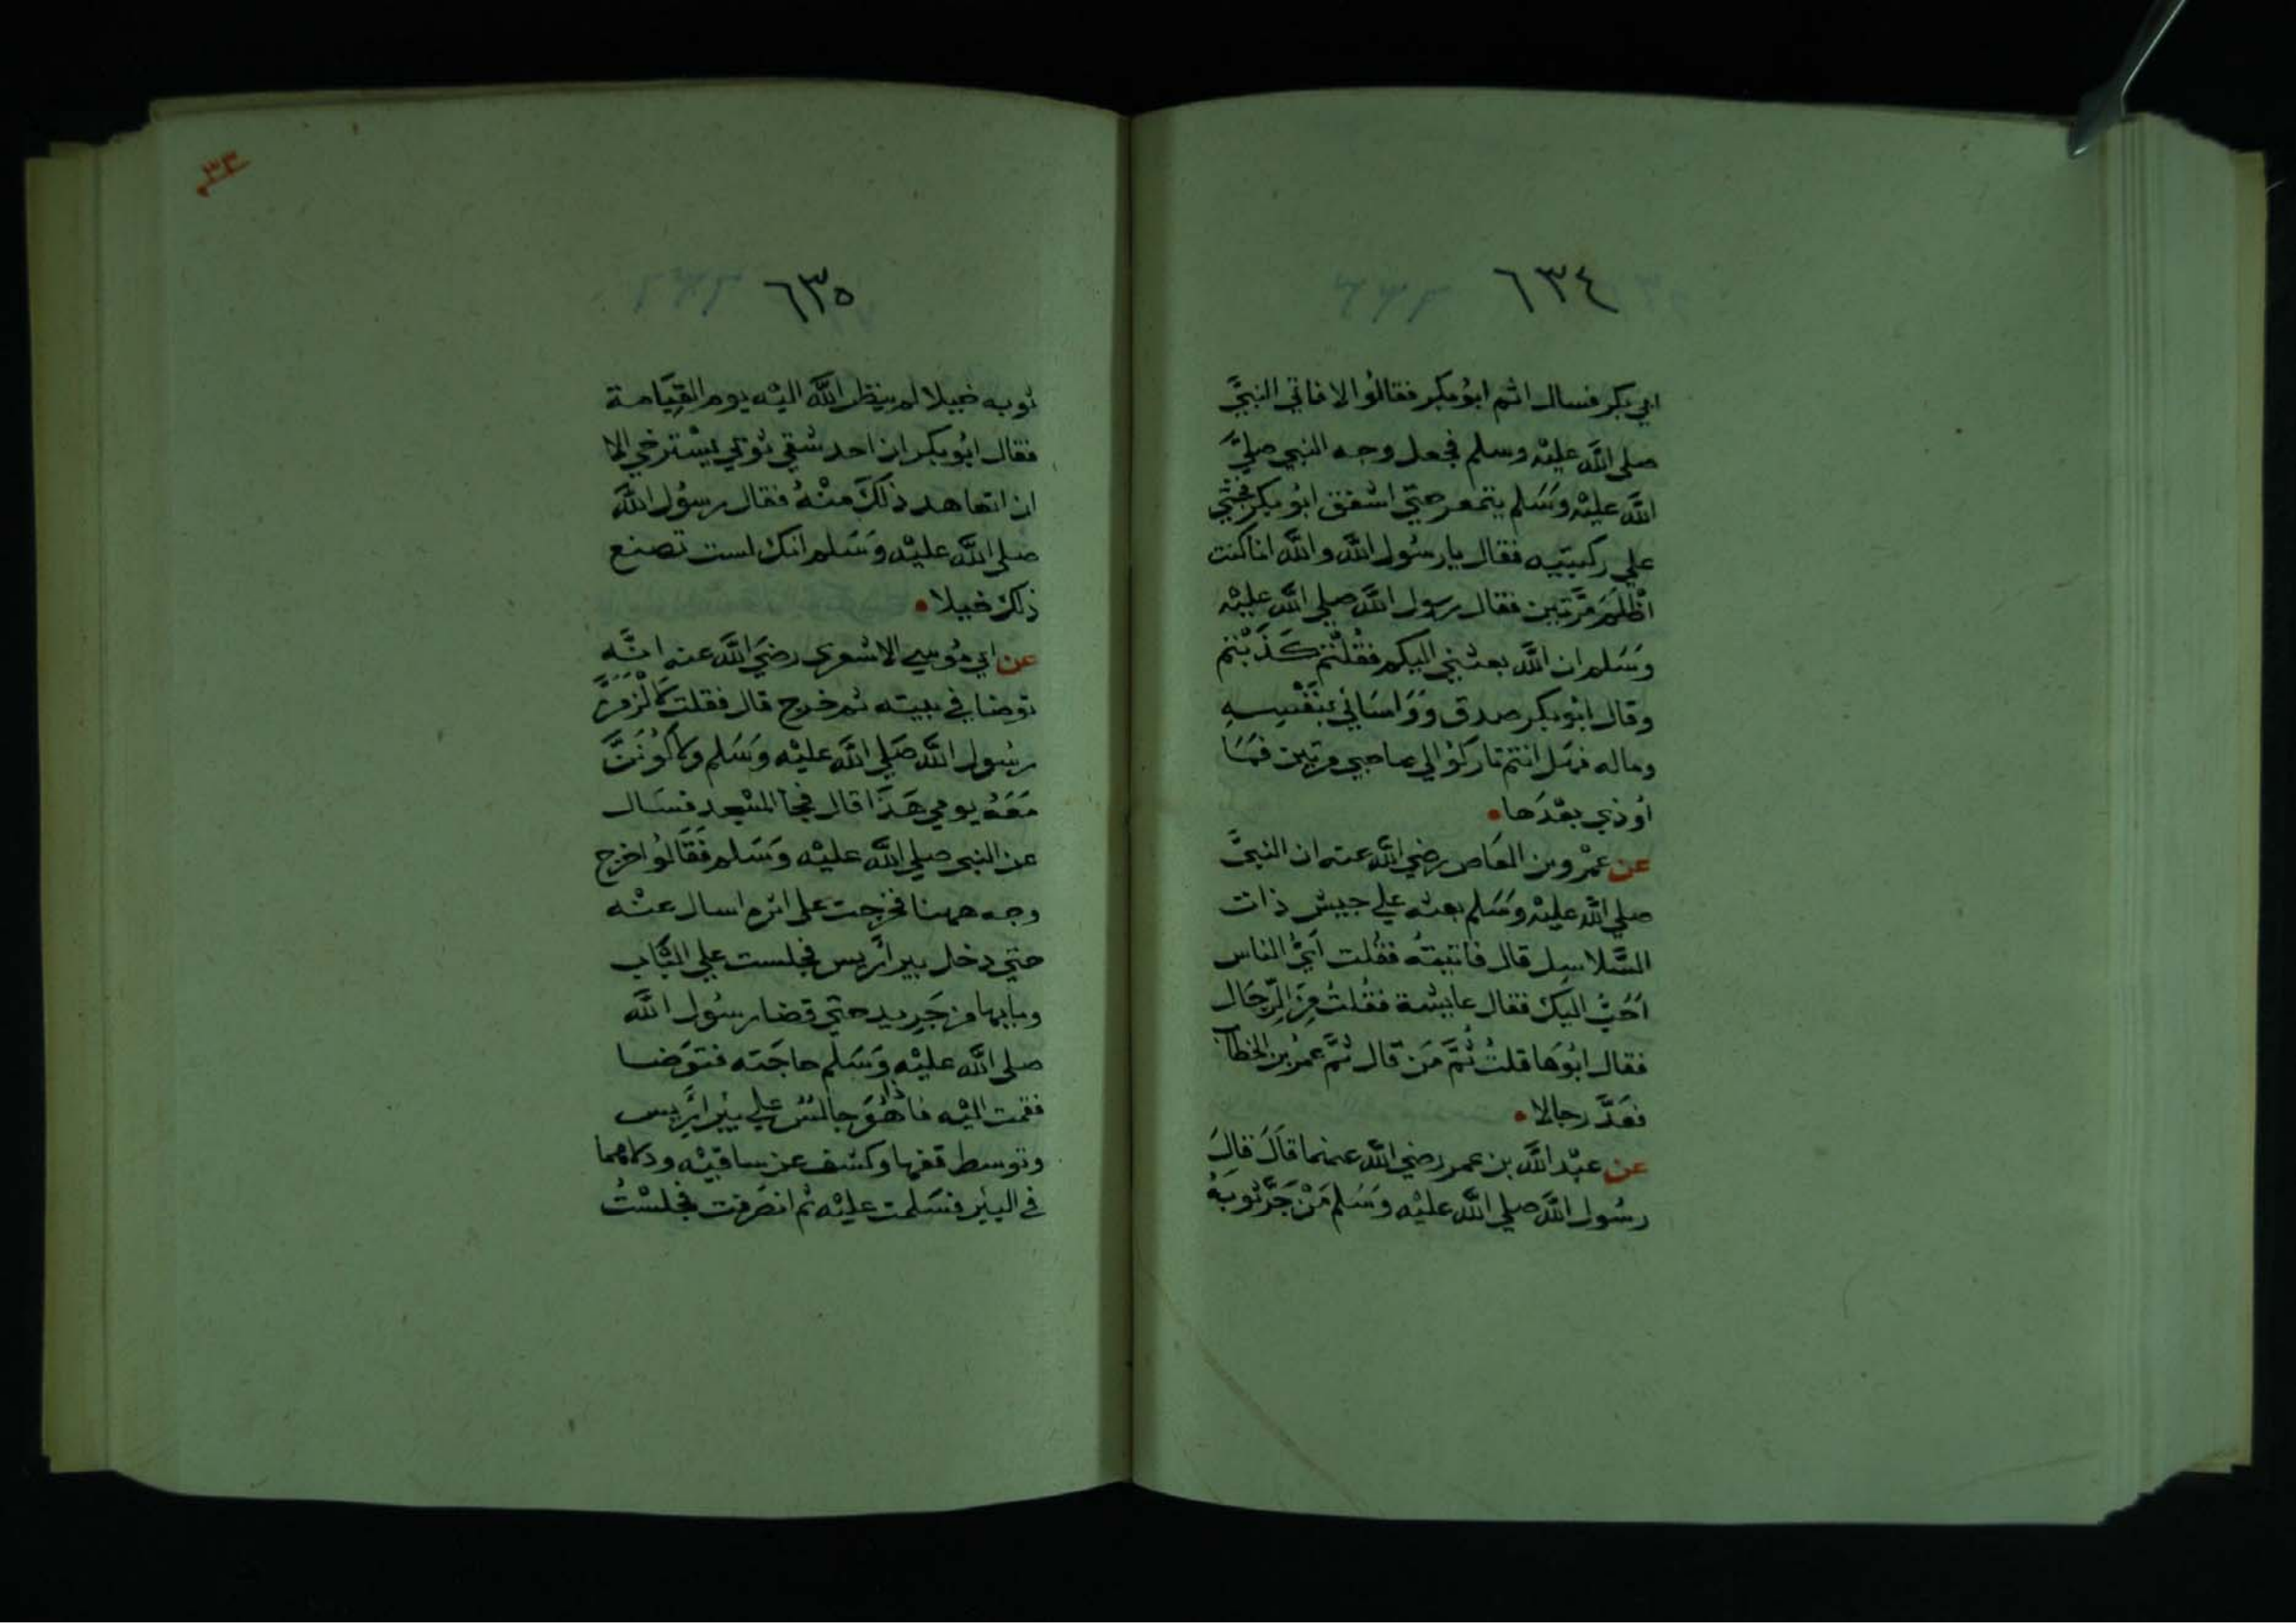 ٦٣٤
ابي بكر فسال اثم ابُو بكر فقالُوا لا فاتي النبيَّ
صلي اللَّه عليْه وسلم فجعل وجه النبي صليَّ
اللَّه عليْه وَسَلم يتمعر حتي اشفق ابُو بكر فجثي
علي ركبتيه فقال يا رسُول اللَّه واللَّه انا كنت
اظْلمَ مرَّتين فقال رسول اللَّه صلي اللَّه عليْه
وَسَلم ان اللَّه بعثني اليكم فقُلْتم كَذَبْتم
وقال ابُو بكر صدق وَوَاسَاني بنَفْسِه
وماله فهَل انتم تاركوْا لي صاحبي مرتين فمَا
اُوذي بعْدَها
عن عمْرو بن العَاص رضي اللَّه عنه ان النبيَّ
صلي اللَّه عليْه وسَلم بعثه علي جيش ذات
السَّلاسِل قال فاتيتهُ فقُلت ايُّ الناس
اَحَبُّ اليك فقال عايشة فقُلتُ مِنَ الرِّجَال
فقال ابُوهَا قلتُ ثُمَّ مَن قال ثُمَّ عمرُ بن الخطاب
فعَدَّ رجالا
عن عبْد اللَّه بن عمر رضي اللَّه عنهما قَالَ قالَ
رسُول اللَّه صلي اللَّه عليْه وسَلم مَنْ جَرَّ ثوبَهُ
٣٣
٦٣٥
ثوبه خيلا لم ينظر اللَّه اليْه يوم القِيَامة
فقال ابُو بكر ان احد شقي ثوبي يسْترخي الا
ان اتعاهد ذلكَ منْهُ فقال رسُول اللَّه
صلي اللَّه عليْه وَسَلم انك لست تصنع
ذلك خيلا
عن ابي مُوسي الاشعري رضيَ اللَّه عنه انَّه
توضا في بيته ثم خرج قال فقلت لالْزمنَّ
رسُول اللَّه صَلي اللَّه عليْه وَسَلم ولاكُونَنَّ
مَعَهُ يومي هَذَا قال فجا المسْجد فسَال
عن النبي صلي اللَّه عليْه وَسَلم فقَالُوا خرج
وجه ههنا فخرجت علي اثره اسال عنْه
حتي دخل بير ارَّيس فجلست علي البَاب
وبابها من جَرِيد حتي قضا رسُول اللَّه
صلي اللَّه عليْه وَسَلم حاجَته فتوَضا
فقمت اليْه فاذا هُوَ جالسٌ علي بيْر ارَّيس
وتوسط قفها وكشف عن ساقيْه ودلاهما
في البيْر فسَلمت عليْه ثم انصَرفت فجلسْتُ